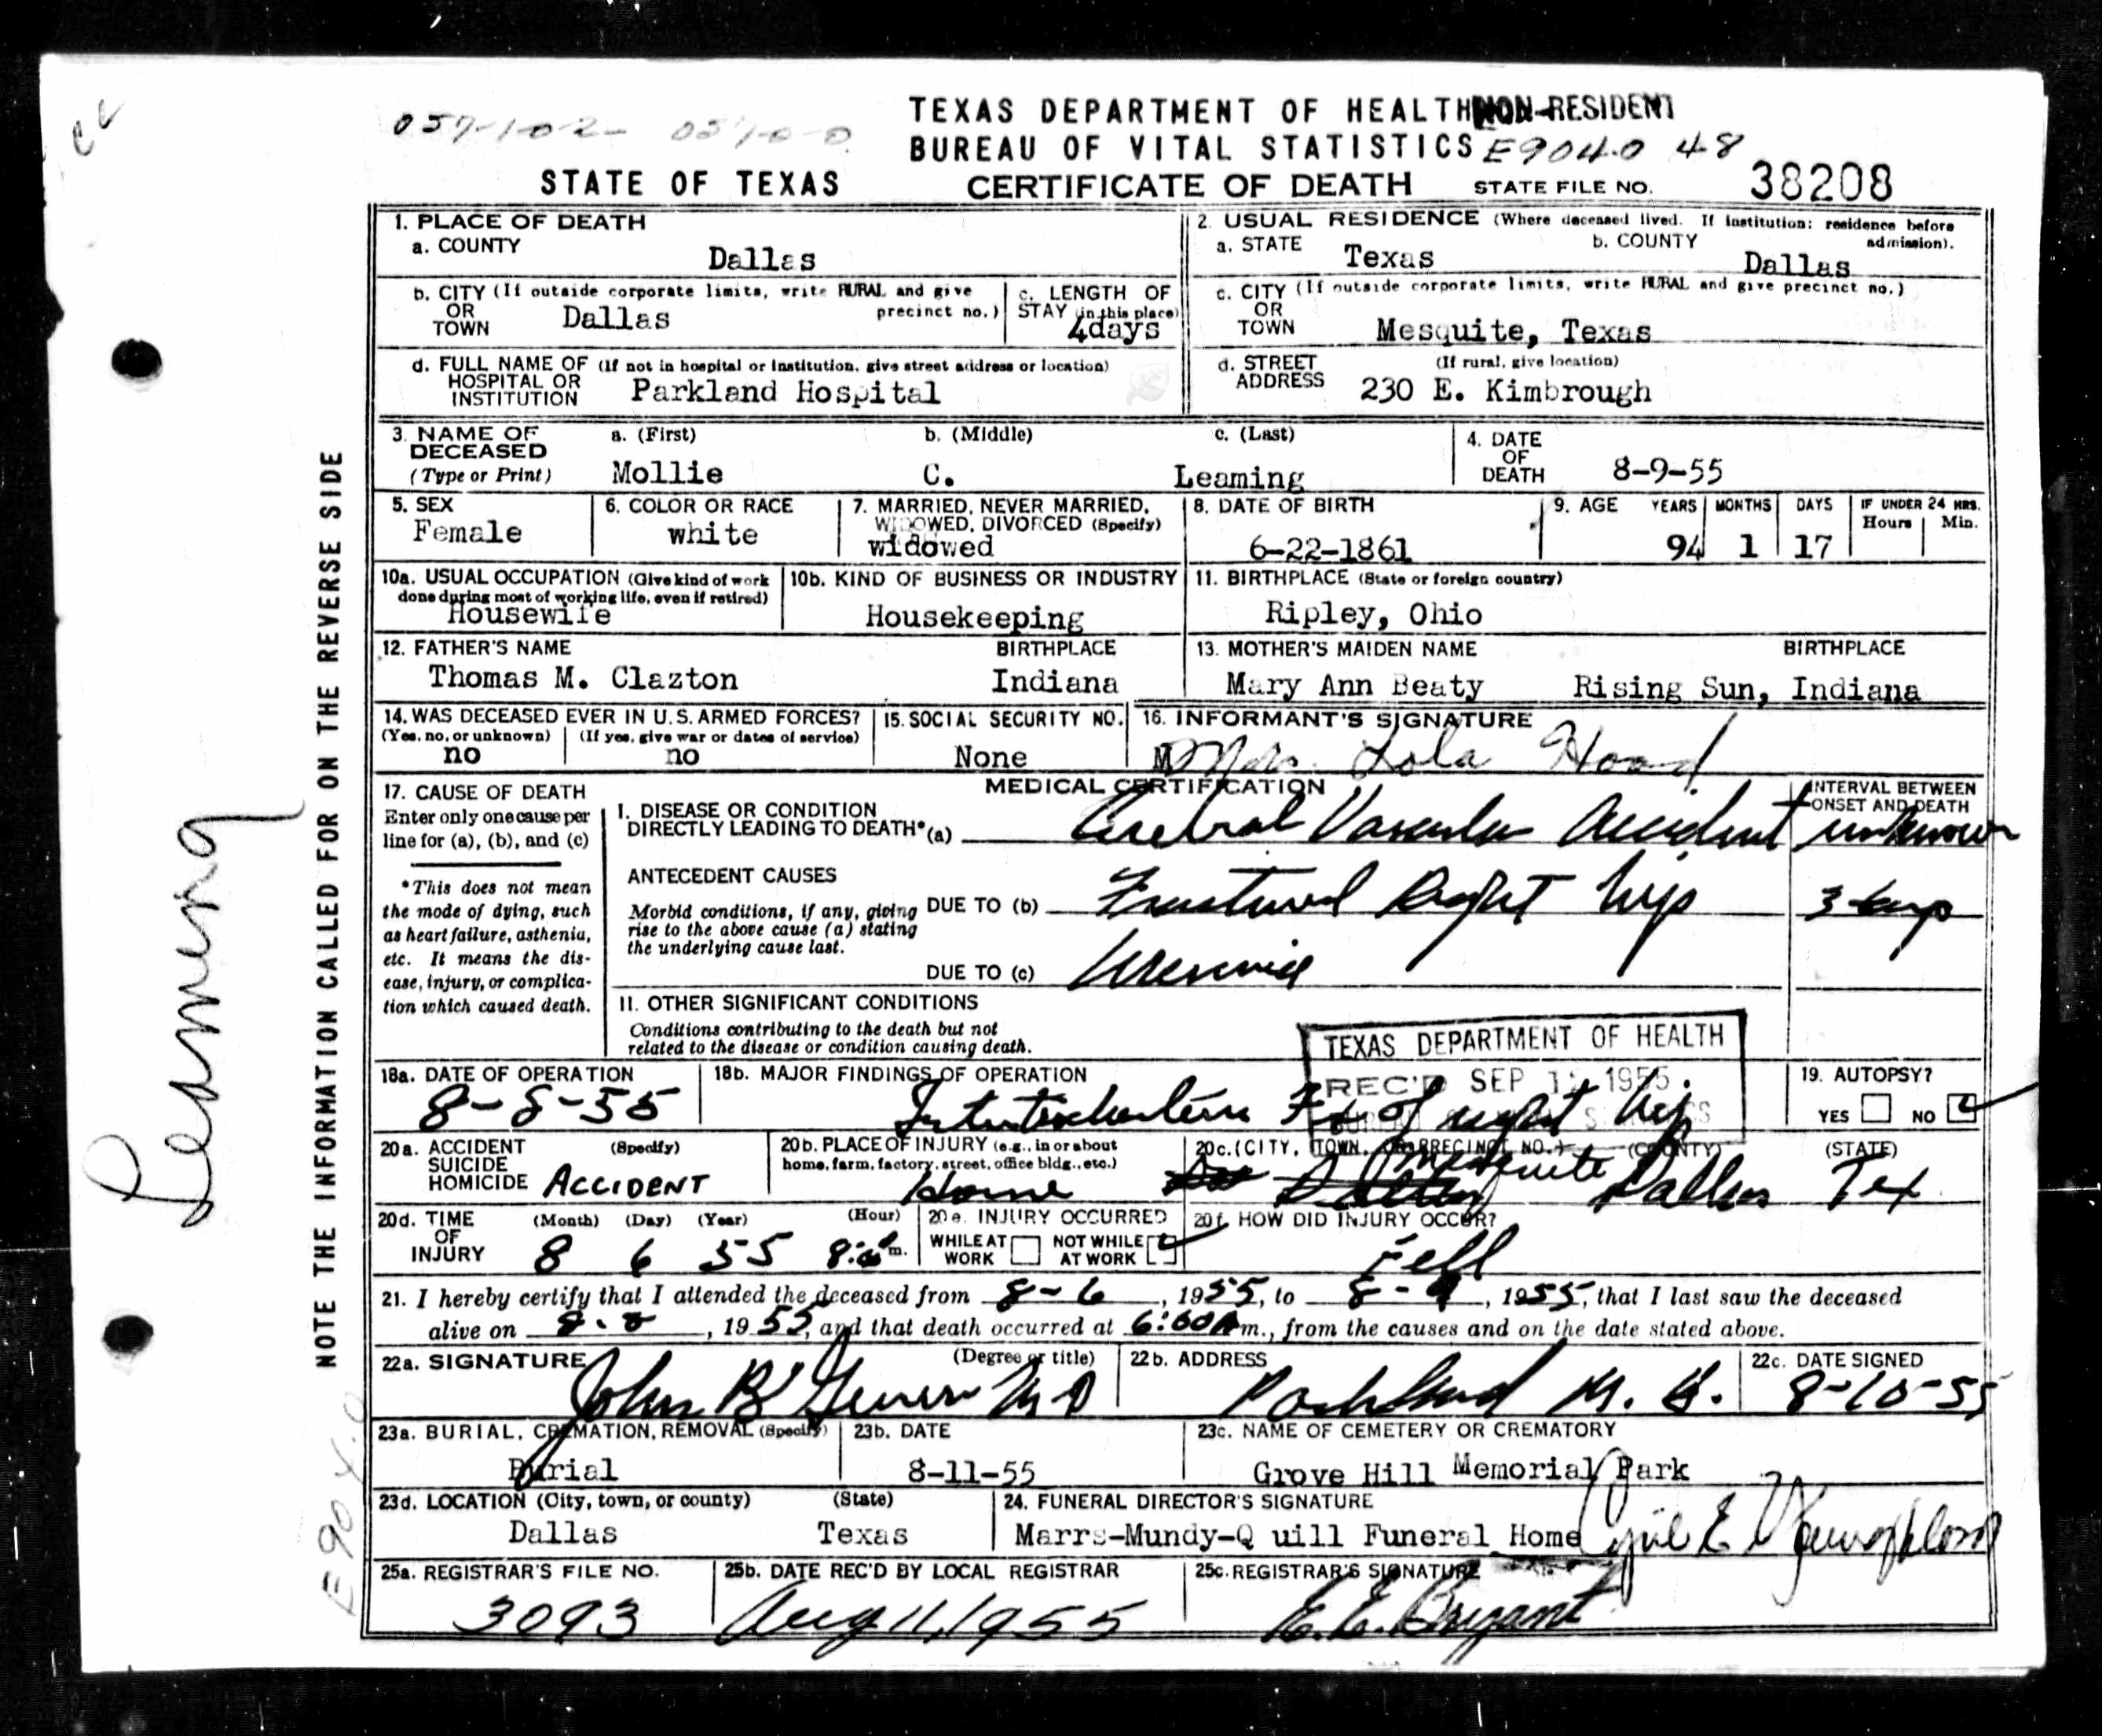 057-102- 0570-0
TEXAS DEPARTMENT OF HEALTH NON-RESIDENT
BUREAU OF VITAL STATISTICS E904.0 48
STATE OF TEXAS CERTIFICATE OF DEATH STATE FILE NO. 38208
1. PLACE OF DEATH
a. COUNTY Dallas
2. USUAL RESIDENCE (Where deceased lived. If institution: residence before admission).
a. STATE Texas b. COUNTY Dallas
b. CITY (If outside corporate limits, write RURAL and give precinct no.)
OR TOWN Dallas
c. LENGTH OF STAY (in this place) 4days
c. CITY (If outside corporate limits, write RURAL and give precinct no.)
OR TOWN Mesquite, Texas
d. FULL NAME OF (If not in hospital or institution, give street address or location)
HOSPITAL OR INSTITUTION Parkland Hospital
d. STREET ADDRESS (If rural, give location)
230 E. Kimbrough
3. NAME OF DECEASED (Type or Print)
a. (First) Mollie b. (Middle) C. c. (Last) Leaming
4. DATE OF DEATH 8-9-55
5. SEX Female
6. COLOR OR RACE white
7. MARRIED, NEVER MARRIED, WIDOWED, DIVORCED (Specify) widowed
8. DATE OF BIRTH 6-22-1861
9. AGE YEARS 94 MONTHS 1 DAYS 17 IF UNDER 24 HRS. Hours Min.
10a. USUAL OCCUPATION (Give kind of work done during most of working life, even if retired)
Housewife
10b. KIND OF BUSINESS OR INDUSTRY
Housekeeping
11. BIRTHPLACE (State or foreign country)
Ripley, Ohio
12. FATHER'S NAME BIRTHPLACE
Thomas M. Clazton Indiana
13. MOTHER'S MAIDEN NAME BIRTHPLACE
Mary Ann Beaty Rising Sun, Indiana
14. WAS DECEASED EVER IN U.S. ARMED FORCES?
(Yes, no, or unknown) (If yes, give war or dates of service)
no no
15. SOCIAL SECURITY NO.
None
16. INFORMANT'S SIGNATURE
M Mrs. Lola Hood
MEDICAL CERTIFICATION
INTERVAL BETWEEN ONSET AND DEATH
17. CAUSE OF DEATH
Enter only one cause per
line for (a), (b), and (c)
*This does not mean
the mode of dying, such
as heart failure, asthenia,
etc. It means the dis-
ease, injury, or complica-
tion which caused death.
I. DISEASE OR CONDITION
DIRECTLY LEADING TO DEATH* (a) Cerebral Vascular Accident unknown
ANTECEDENT CAUSES
Morbid conditions, if any, giving
rise to the above cause (a) stating
the underlying cause last.
DUE TO (b) Fractured Right hip 3 days
DUE TO (c) Uremia
II. OTHER SIGNIFICANT CONDITIONS
Conditions contributing to the death but not
related to the disease or condition causing death.
TEXAS DEPARTMENT OF HEALTH
REC'D SEP 1955
18a. DATE OF OPERATION
8-8-55
18b. MAJOR FINDINGS OF OPERATION
Fx of right hip
19. AUTOPSY?
YES NO
20a. ACCIDENT SUICIDE HOMICIDE (Specify) ACCIDENT
20b. PLACE OF INJURY (e.g., in or about home, farm, factory, street, office bldg., etc.)
Home
20c. (CITY, TOWN, OR PRECINCT NO.) (COUNTY) (STATE)
Mesquite Dallas Tex
20d. TIME OF INJURY (Month) (Day) (Year) (Hour)
8 6 55 m.
20e. INJURY OCCURRED
WHILE AT WORK NOT WHILE AT WORK
20f. HOW DID INJURY OCCUR?
Fell
21. I hereby certify that I attended the deceased from 8-6, 1955, to 8-9, 1955, that I last saw the deceased
alive on 8-8, 1955, and that death occurred at 6:00A m., from the causes and on the date stated above.
22a. SIGNATURE (Degree or title)
John B MD
22b. ADDRESS
Parkland M. H.
22c. DATE SIGNED
8-10-55
23a. BURIAL, CREMATION, REMOVAL (Specify)
Burial
23b. DATE
8-11-55
23c. NAME OF CEMETERY OR CREMATORY
Grove Hill Memorial Park
23d. LOCATION (City, town, or county) (State)
Dallas Texas
24. FUNERAL DIRECTOR'S SIGNATURE
Marrs-Mundy-Q uill Funeral Home
25a. REGISTRAR'S FILE NO.
3093
25b. DATE REC'D BY LOCAL REGISTRAR
Aug 11, 1955
25c. REGISTRAR'S SIGNATURE
E. E. Bryant
NOTE THE INFORMATION CALLED FOR ON THE REVERSE SIDE
Leaming
E90X.0